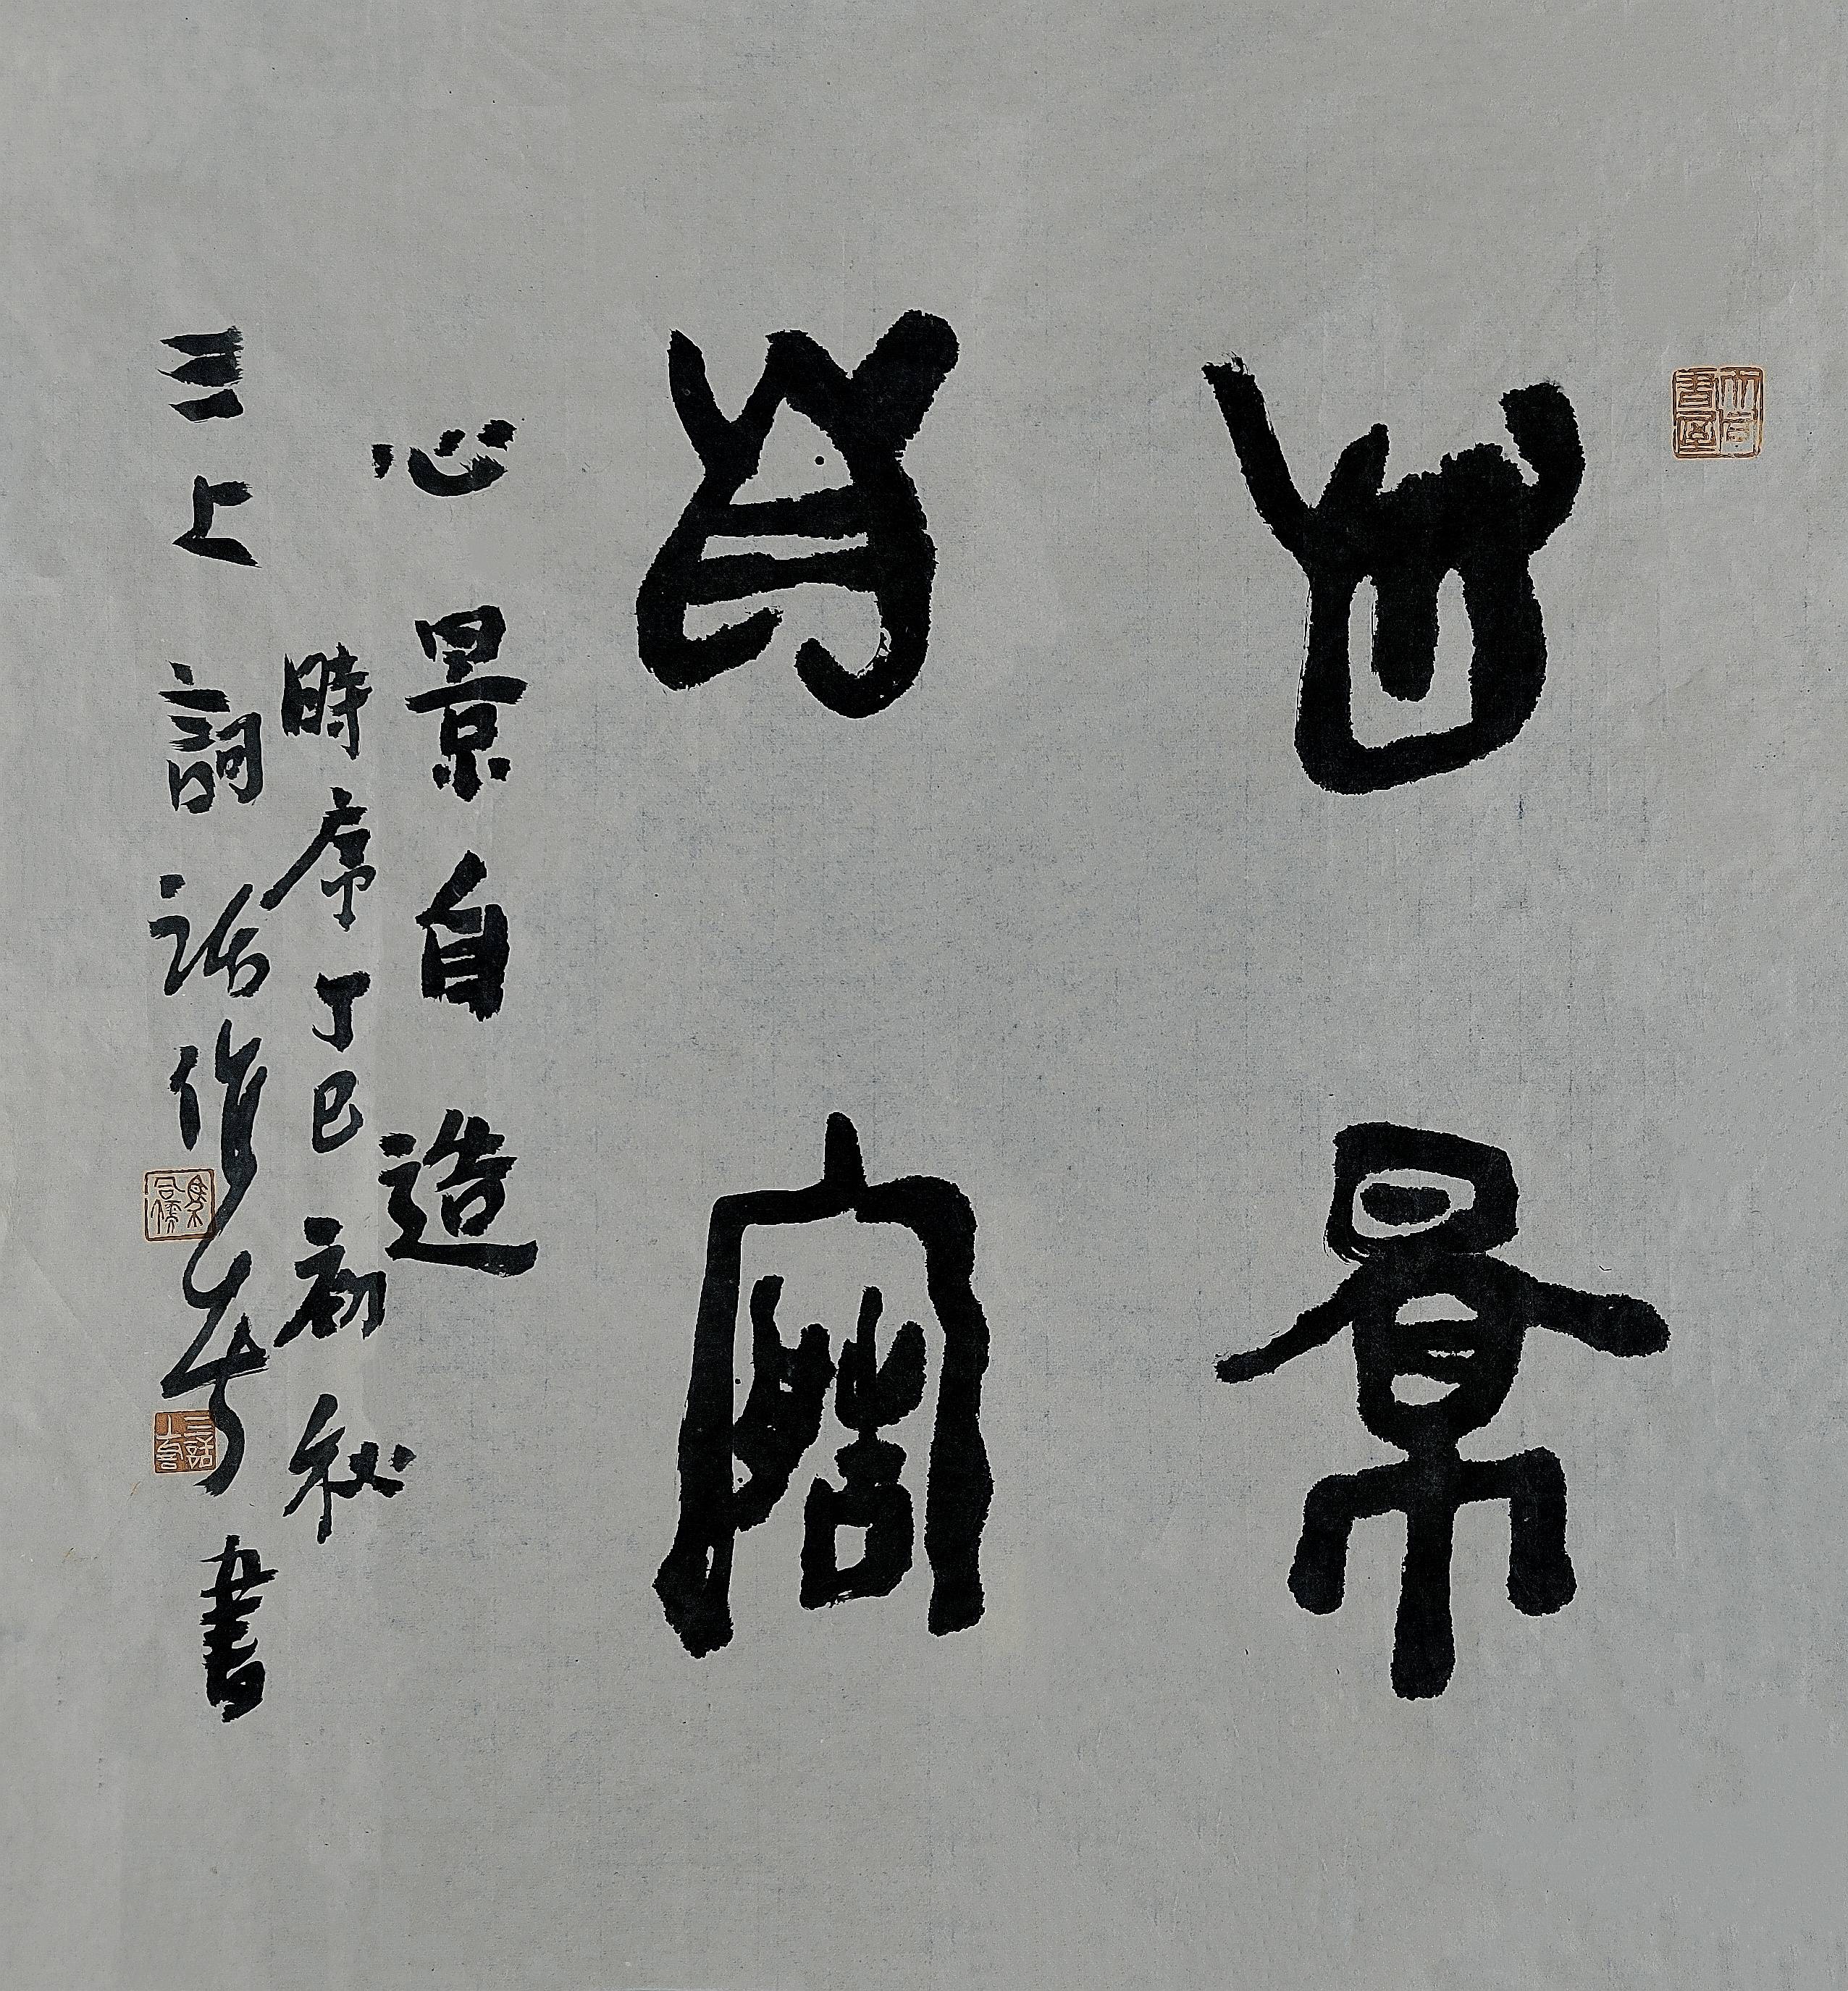 心景
自造
心景自造
時席丁巳初秋
三上詞話作者書